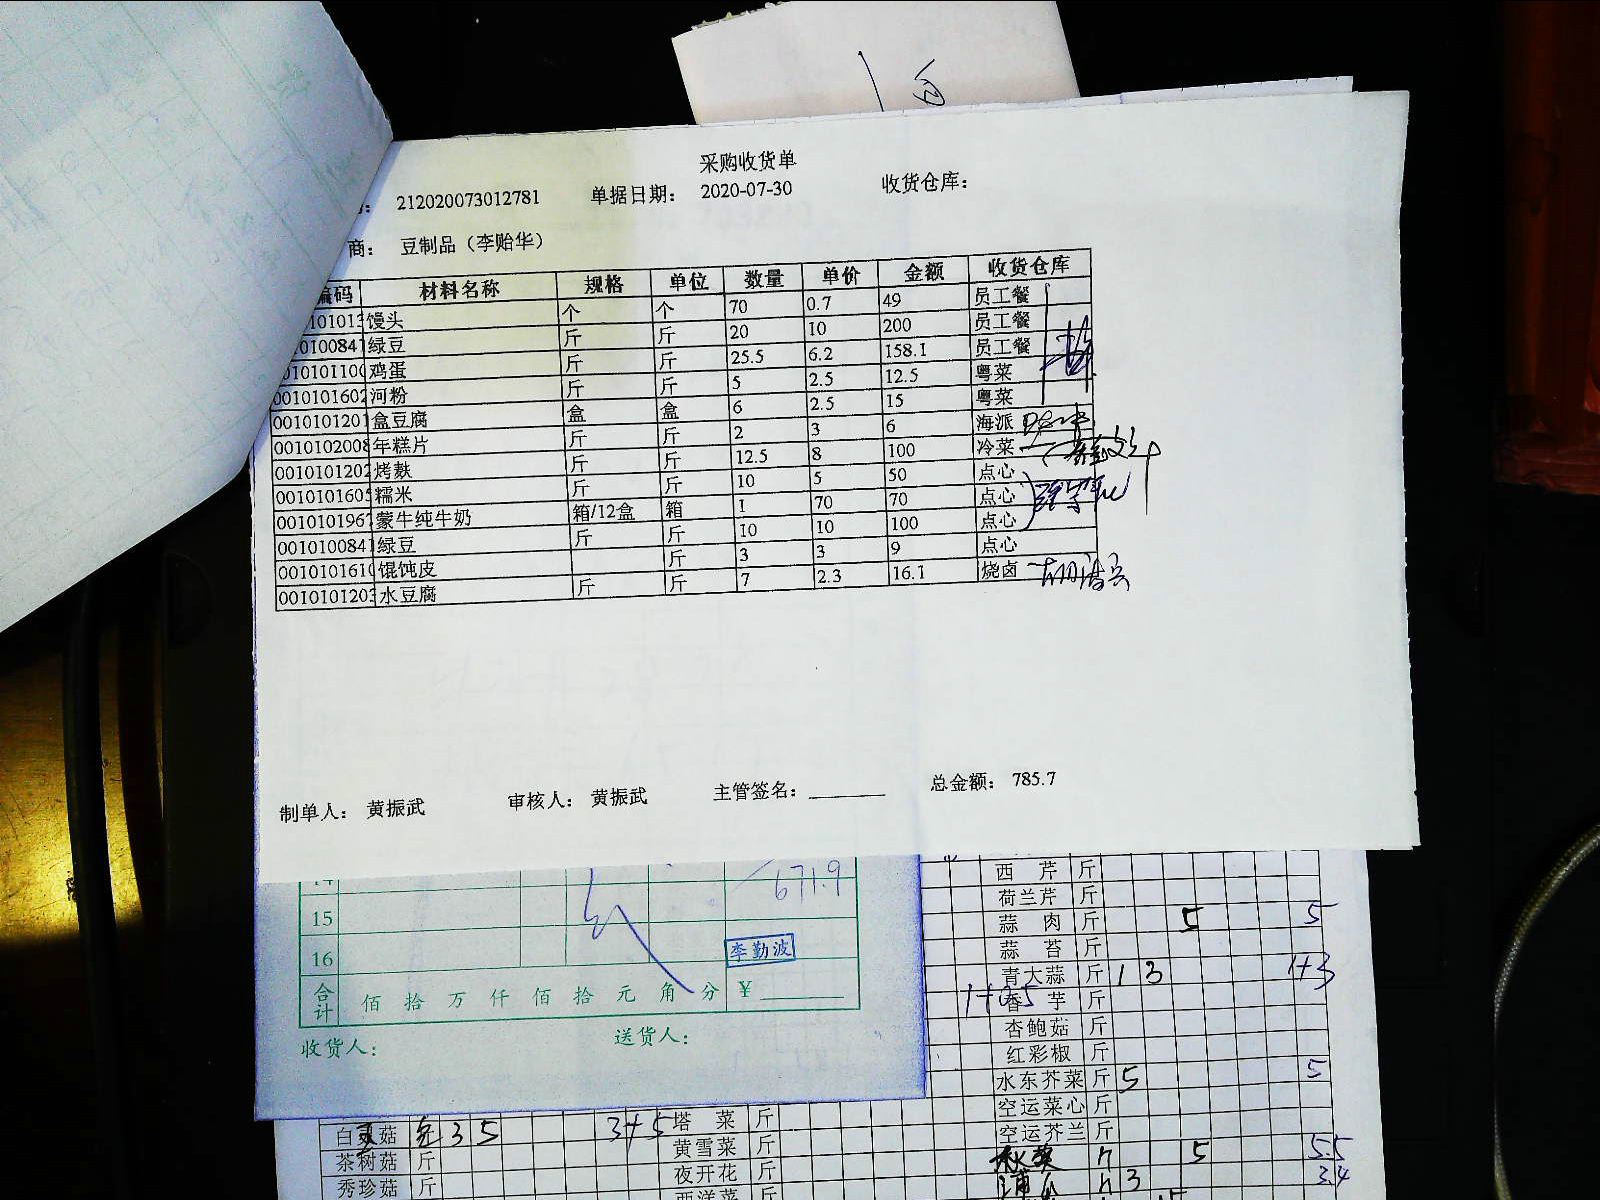 采购收货单
212020073012781 单据日期： 2020-07-30 收货仓库：
商： 豆制品（李贻华）
编码 材料名称 规格 单位 数量 单价 金额 收货仓库
馒头 个 个 70 0.7 49 员工餐
绿豆 斤 斤 20 10 200 员工餐
鸡蛋 斤 斤 25.5 6.2 158.1 员工餐
0010101602 河粉 斤 斤 5 2.5 12.5 粤菜
0010101201 盒豆腐 盒 盒 6 2.5 15 粤菜
0010102008 年糕片 斤 斤 2 3 6 海派
0010101202 烤麸 斤 斤 12.5 8 100 冷菜
0010101605 糯米 斤 斤 10 5 50 点心
0010101967 蒙牛纯牛奶 箱/12盒 箱 1 70 70 点心
0010100841 绿豆 斤 斤 10 10 100 点心
0010101610 馄饨皮 斤 3 3 9 点心
0010101203 水豆腐 斤 斤 7 2.3 16.1 烧卤
制单人： 黄振武 审核人： 黄振武 主管签名： 总金额： 785.7
14 671.9
15
16 李勤波
合计 佰 拾 万 仟 佰 拾 元 角 分 ¥
收货人： 送货人：
西芹 斤
荷兰芹 斤
蒜肉 斤 5 5
蒜苔 斤
青大蒜 斤 1 3 1+3
香芋 斤
杏鲍菇 斤
红彩椒 斤
水东芥菜 斤 5 5
空运菜心 斤
空运芥兰 斤
5 5.5
3 3.4
白灵菇 3 5 3+5 塔菜 斤
茶树菇 斤 黄雪菜 斤
秀珍菇 斤 夜开花 斤
西洋菜 斤